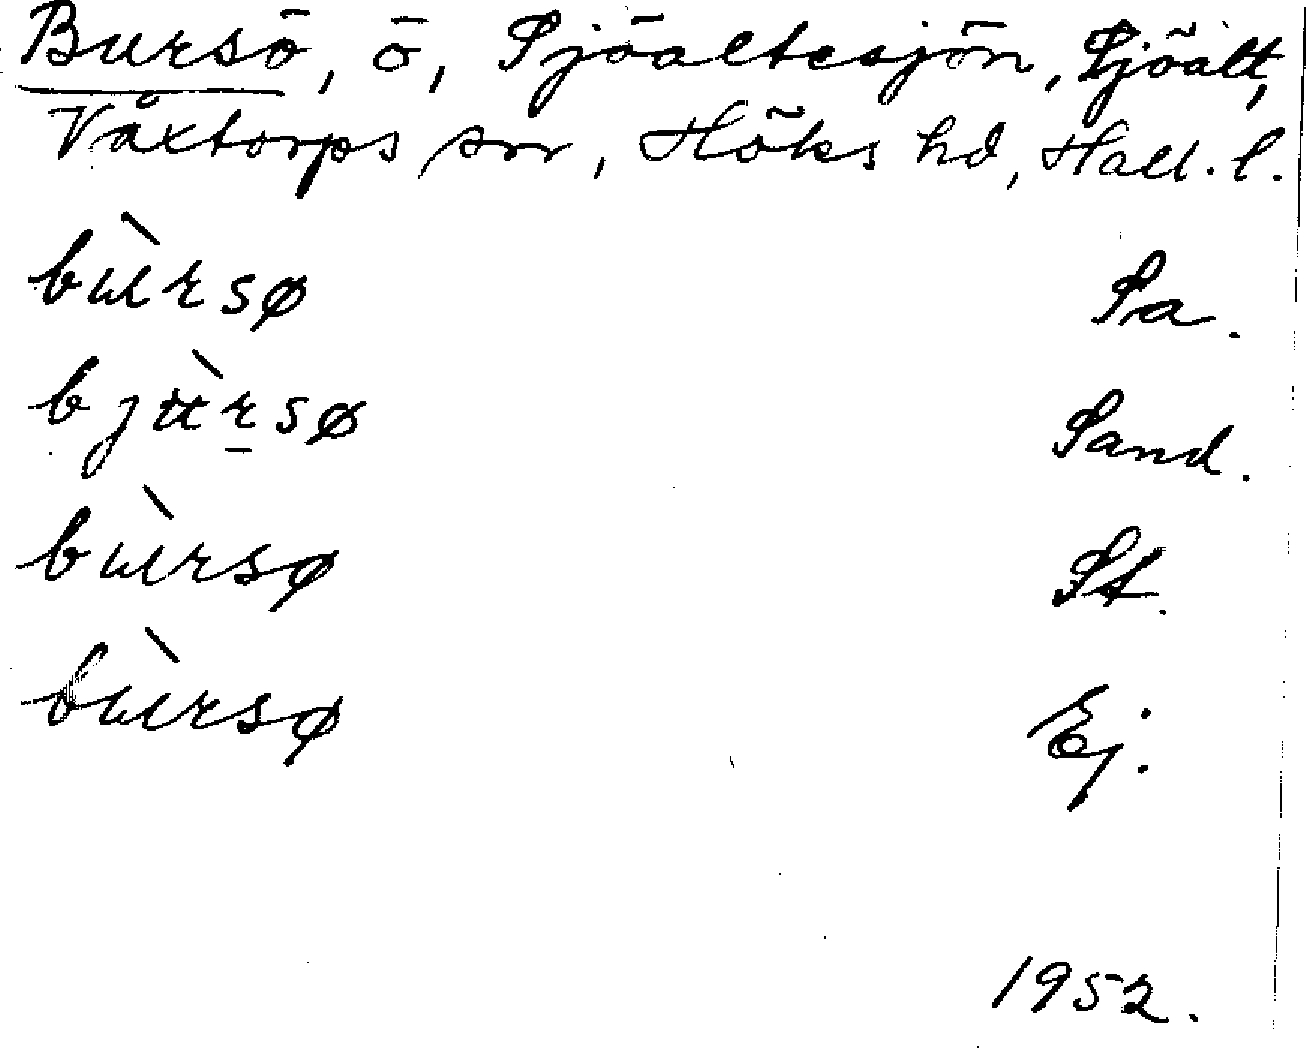 Bursö, ö, Sjöaltesjön, Sjöalt,
Våxtorps sn, Höks hd, Hall. l.
bùrsø Sa.
bjùrsø Sand.
bùrsø St.
bùrsø Ej.
1952.